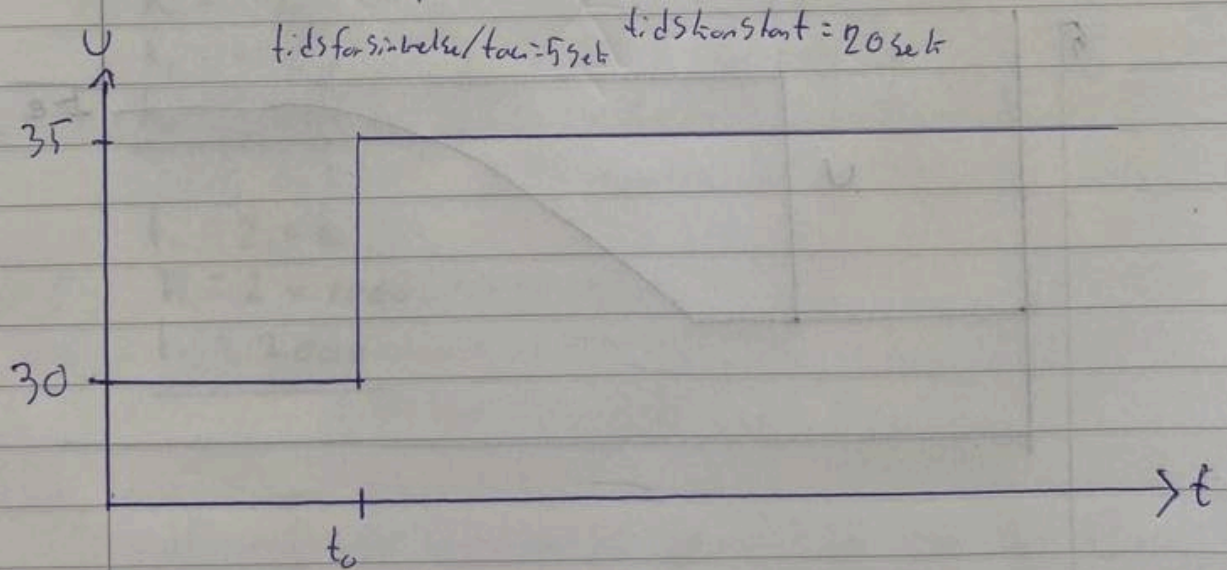 tidsforsinkelse/tau=5sek tidskonstant = 20 sek
U
35
30
t
t₀